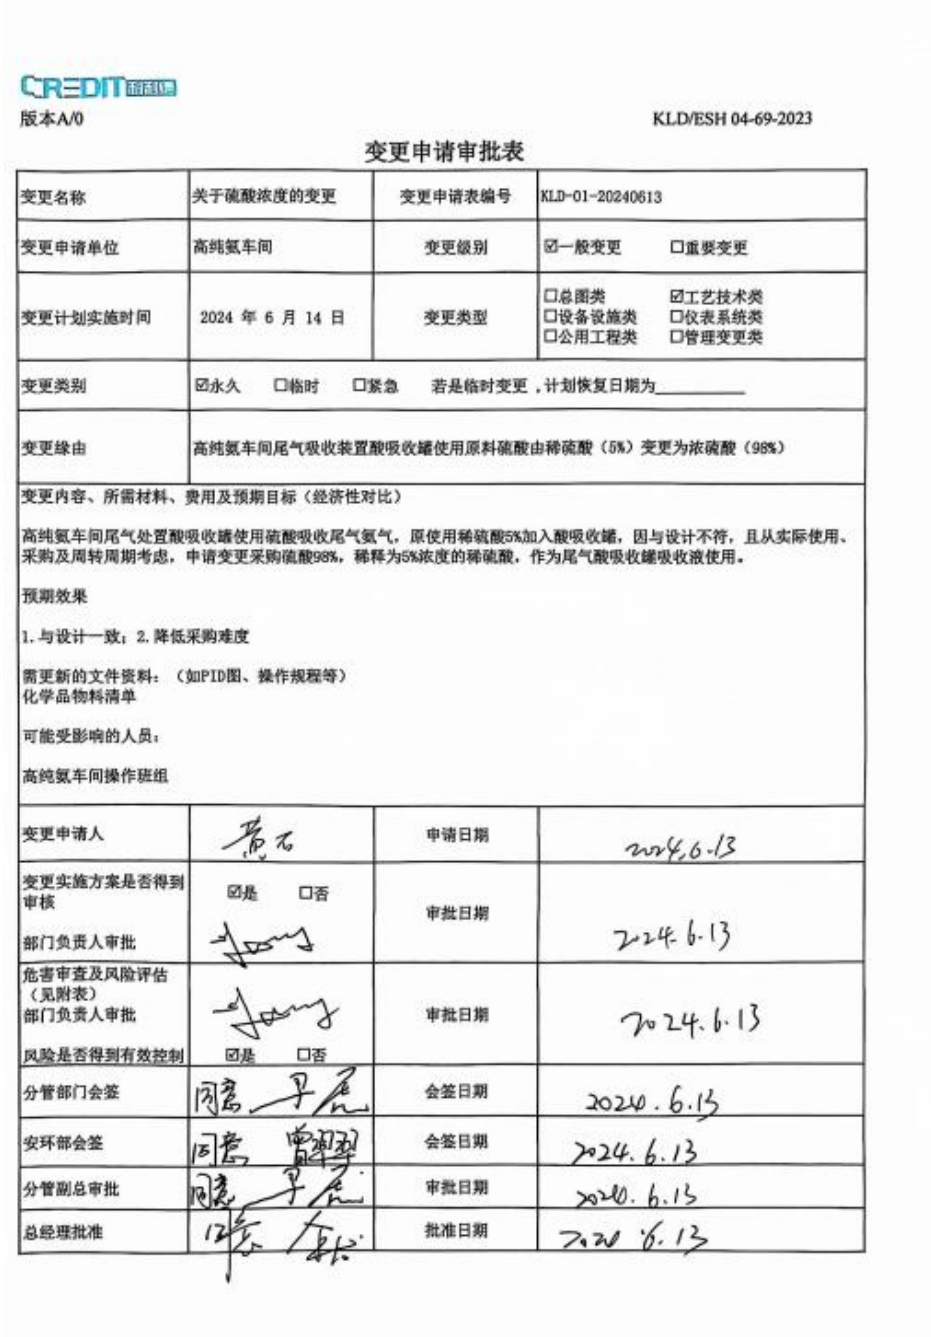 CREDIT
版本A/0
KLD/ESH 04-69-2023
变更申请审批表
变更名称 关于硫酸浓度的变更 变更申请表编号 KLD-01-20240613
变更申请单位 高纯氨车间 变更级别 ☑一般变更 □重要变更
变更计划实施时间 2024 年 6 月 14 日 变更类型
□总图类 ☑工艺技术类
□设备设施类 □仪表系统类
□公用工程类 □管理变更类
变更类别 ☑永久 □临时 □紧急 若是临时变更，计划恢复日期为
变更缘由 高纯氨车间尾气吸收装置酸吸收罐使用原料硫酸由稀硫酸（5%）变更为浓硫酸（98%）
变更内容、所需材料、费用及预期目标（经济性对比）
高纯氨车间尾气处置酸吸收罐使用硫酸吸收尾气氨气，原使用稀硫酸5%加入酸吸收罐，因与设计不符，且从实际使用、
采购及周转周期考虑，申请变更采购硫酸98%，稀释为5%浓度的稀硫酸，作为尾气酸吸收罐吸收液使用。
预期效果
1.与设计一致；2.降低采购难度
需更新的文件资料：（如PID图、操作规程等）
化学品物料清单
可能受影响的人员：
高纯氨车间操作班组
变更申请人 黄石 申请日期 2024.6.13
变更实施方案是否得到
审核
☑是 □否
部门负责人审批
审批日期 2024.6.13
危害审查及风险评估
（见附表）
部门负责人审批
审批日期 2024.6.13
风险是否得到有效控制 ☑是 □否
分管部门会签 同意 会签日期 2024.6.13
安环部会签 同意 会签日期 2024.6.13
分管副总审批 同意 审批日期 2024.6.13
总经理批准 同意 批准日期 2024.6.13